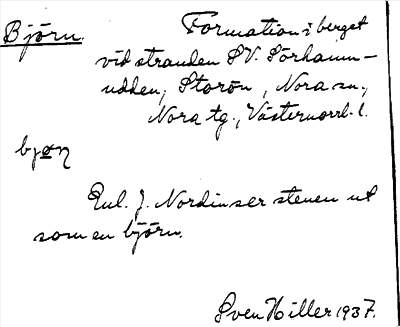 Björn. Formation i berget
vid stranden SV. Sörhamn-
udden, Storön, Nora sn.,
Nora tg., Västernorrl. l.
bjøη
Enl. J. Nordin ser stenen ut
som en björn.
Sven Hiller 1937.